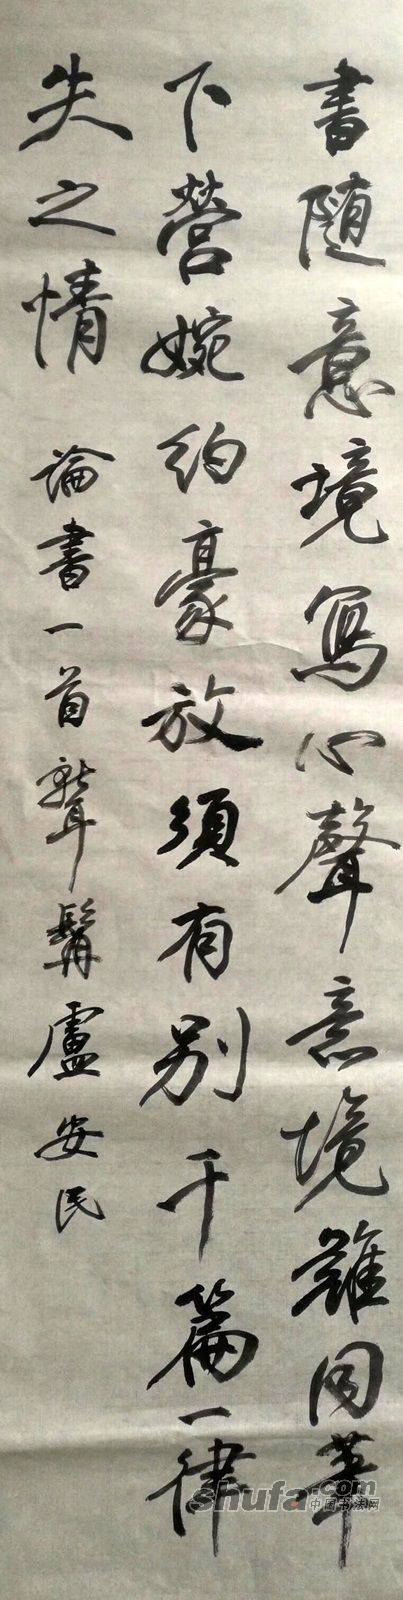 書隨意境寫心聲意境難同筆
下營婉約豪放須有別千篇一律
失之情
論書一首聾髯盧安民
shufa.com
中国书法网